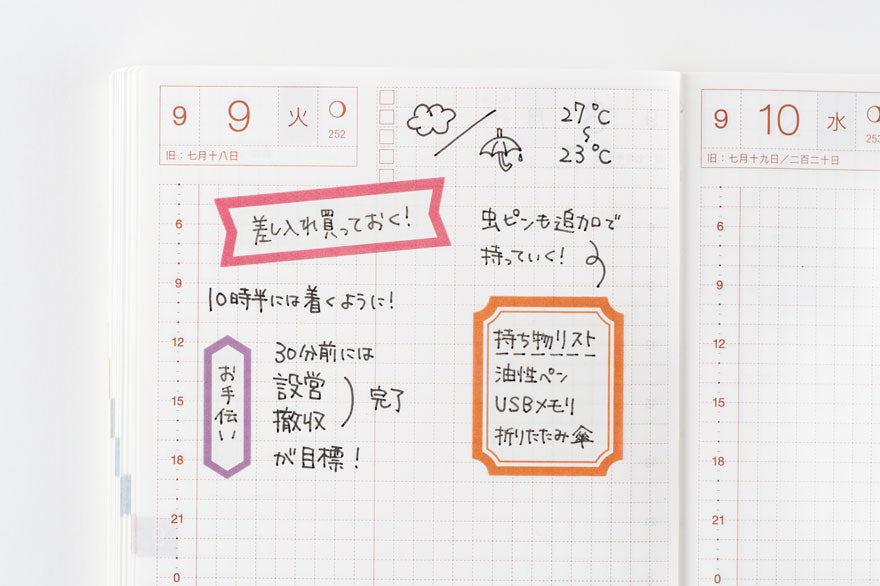 9 9 火
252
旧：七月十八日
27℃
〜
23℃
差し入れ買っておく!
虫ピンも追加で
持っていく!
10時半には着くように!
お手伝い
30分前には
設営
撤収
完了
が目標!
持ち物リスト
油性ペン
USBメモリ
折りたたみ傘
6
9
12
15
18
21
0
9 10 水
253
旧：七月十九日／二百二十日
6
9
12
15
18
21
0